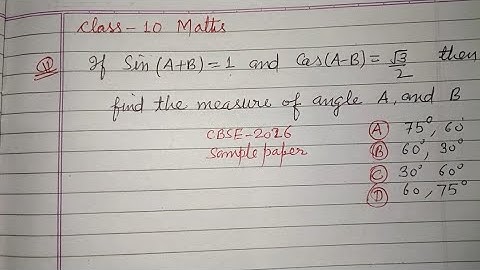 Class - 10 Maths
(11) If Sin (A+B) = 1 and Cas(A-B) = √3/2 then
find the measure of angle A, and B
CBSE-2026 (A) 75°, 60°
Sample paper (B) 60°, 30°
(C) 30° 60°
(D) 60, 75°